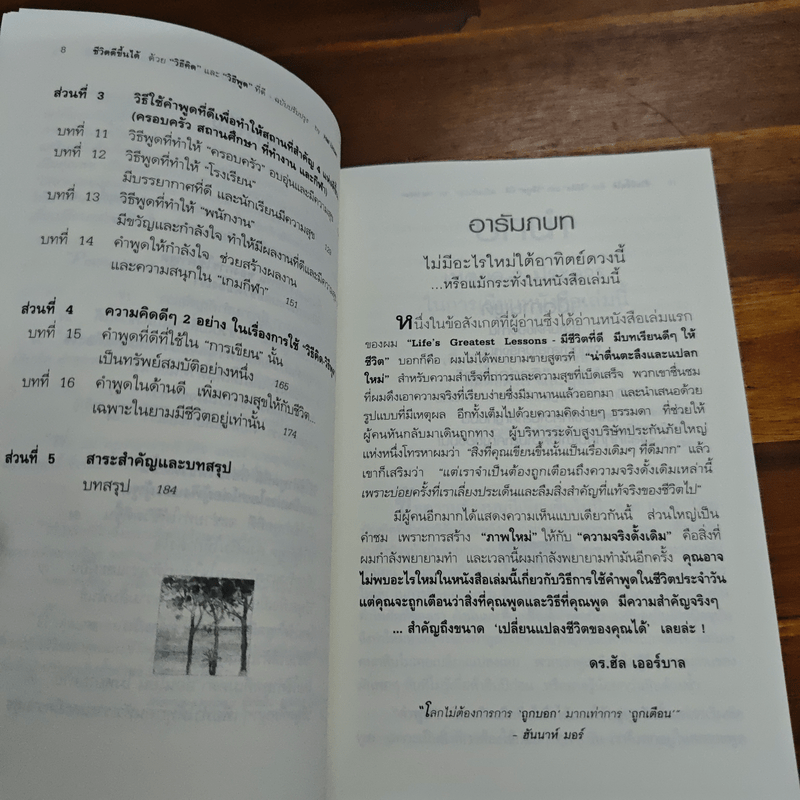 8 ชีวิตดีขึ้นได้ ด้วย "วิธีคิด" และ "วิธีพูด" ที่ดี - ฉบับปรับปรุง
ส่วนที่ 3 วิธีใช้คำพูดที่ดีเพื่อทำให้สถานที่สำคัญ 4
(ครอบครัว สถานศึกษา ที่ทำงาน และกีฬา)
บทที่ 11 วิธีพูดที่ทำให้ "ครอบครัว" อบอุ่นและมีความสุข
บทที่ 12 วิธีพูดที่ทำให้ "โรงเรียน"
มีบรรยากาศที่ดี และนักเรียนมีความสุข
บทที่ 13 วิธีพูดที่ทำให้ "พนักงาน"
มีขวัญและกำลังใจ ทำให้มีผลงานที่ดีและมีความสุข
บทที่ 14 คำพูดให้กำลังใจ ช่วยสร้างผลงาน
และความสนุกใน "เกมกีฬา" 151
ส่วนที่ 4 ความคิดดีๆ 2 อย่าง ในเรื่องการใช้ "วิธีคิด-วิธีพูด"
บทที่ 15 คำพูดที่ดีที่ใช้ใน "การเขียน" นั้น
เป็นทรัพย์สมบัติอย่างหนึ่ง 165
บทที่ 16 คำพูดในด้านดี เพิ่มความสุขให้กับชีวิต...
เฉพาะในยามมีชีวิตอยู่เท่านั้น 174
ส่วนที่ 5 สาระสำคัญและบทสรุป
บทสรุป 184
อารัมภบท
ไม่มีอะไรใหม่ใต้อาทิตย์ดวงนี้
...หรือแม้กระทั่งในหนังสือเล่มนี้
หนึ่งในข้อสังเกตที่ผู้อ่านซึ่งได้อ่านหนังสือเล่มแรก
ของผม "Life's Greatest Lessons - มีชีวิตที่ดี มีบทเรียนดีๆ ให้
ชีวิต" บอกก็คือ ผมไม่ได้พยายามขายสูตรที่ "น่าตื่นตะลึงและแปลก
ใหม่" สำหรับความสำเร็จที่ถาวรและความสุขที่เบ็ดเสร็จ พวกเขาชื่นชม
ที่ผมดึงเอาความจริงที่เรียบง่ายซึ่งมีมานานแล้วออกมา และนำเสนอด้วย
รูปแบบที่มีเหตุผล อีกทั้งเต็มไปด้วยความคิดง่ายๆ ธรรมดา ที่ช่วยให้
ผู้คนหันกลับมาเดินถูกทาง ผู้บริหารระดับสูงบริษัทประกันภัยใหญ่
แห่งหนึ่งโทรหาผมว่า "สิ่งที่คุณเขียนขึ้นนั้นเป็นเรื่องเดิมๆ ที่ดีมาก" แล้ว
เขาก็เสริมว่า "แต่เราจำเป็นต้องถูกเตือนถึงความจริงดั้งเดิมเหล่านี้
เพราะบ่อยครั้งที่เราเลี่ยงประเด็นและลืมสิ่งสำคัญที่แท้จริงของชีวิตไป"
มีผู้คนอีกมากได้แสดงความเห็นแบบเดียวกันนี้ ส่วนใหญ่เป็น
คำชม เพราะการสร้าง "ภาพใหม่" ให้กับ "ความจริงดั้งเดิม" คือสิ่งที่
ผมกำลังพยายามทำ และเวลานี้ผมกำลังพยายามทำมันอีกครั้ง คุณอาจ
ไม่พบอะไรใหม่ในหนังสือเล่มนี้เกี่ยวกับวิธีการใช้คำพูดในชีวิตประจำวัน
แต่คุณจะถูกเตือนว่าสิ่งที่คุณพูดและวิธีที่คุณพูด มีความสำคัญจริงๆ
... สำคัญถึงขนาด 'เปลี่ยนแปลงชีวิตของคุณได้' เลยล่ะ !
ดร.ฮัล เออร์บาล
"โลกไม่ต้องการการ 'ถูกบอก' มากเท่าการ 'ถูกเตือน'"
- ฮันนาห์ มอร์